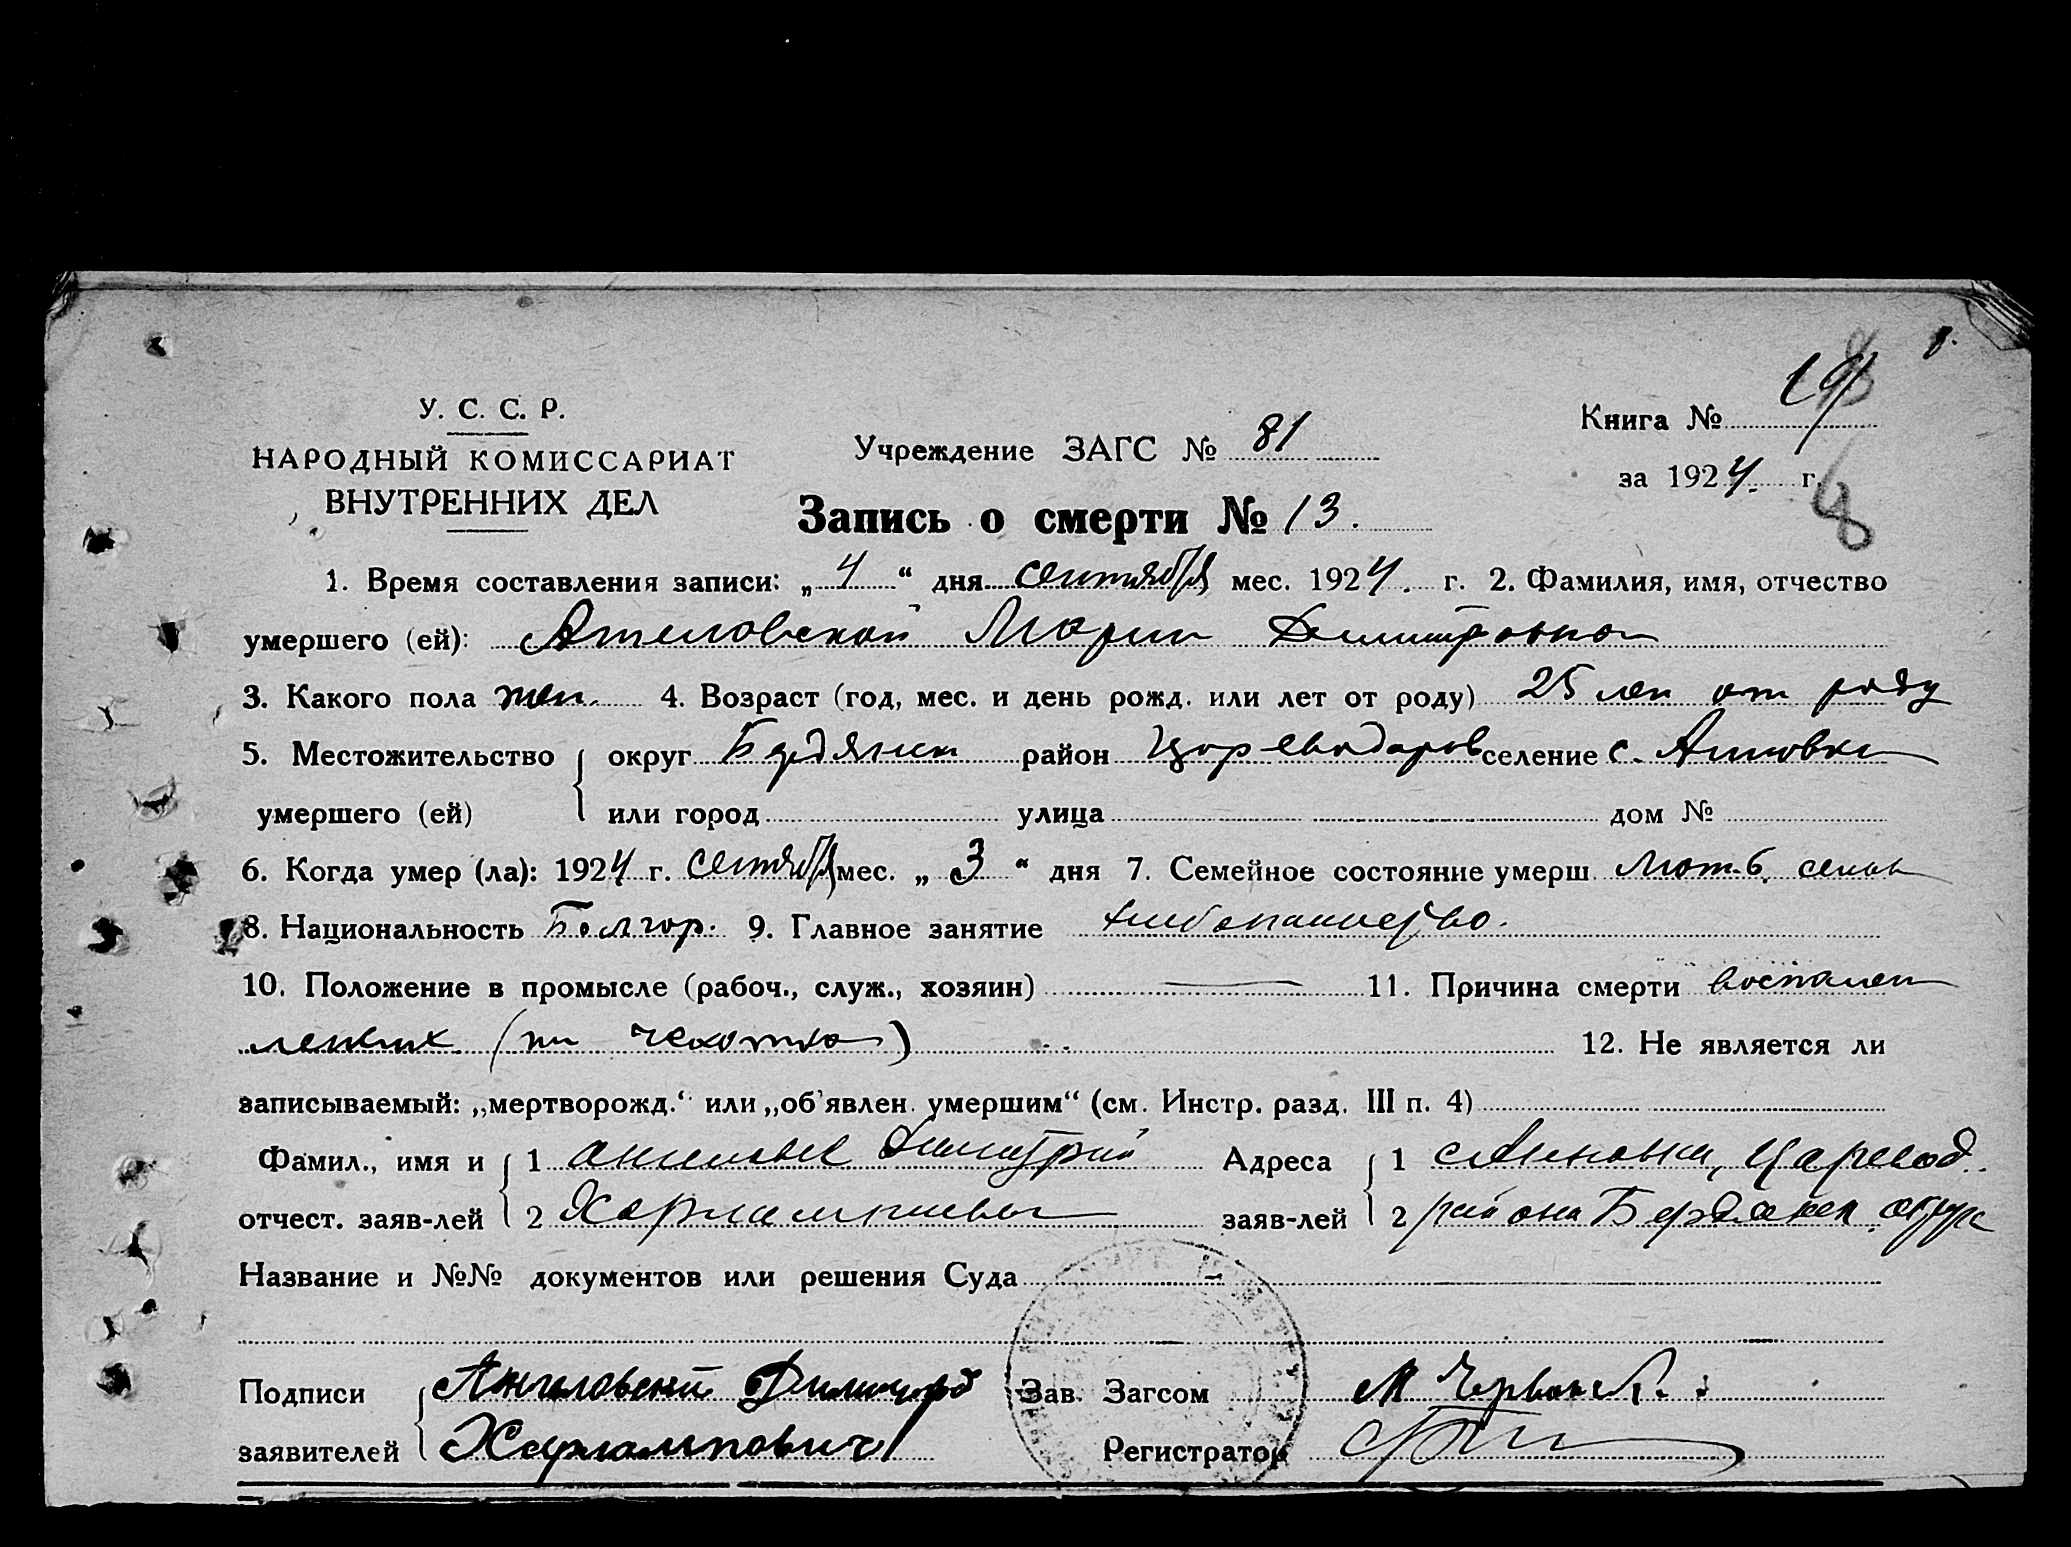 У. С. С. Р.
НАРОДНЫЙ КОМИССАРИАТ
ВНУТРЕННИХ ДЕЛ
Учреждение ЗАГС № 81
Книга № 19
за 1924. г.
8
Запись о смерти № 13.
1. Время составления записи: „4“ дня сентября мес. 1924. г. 2. Фамилия, имя, отчество
умершего (ей): Марии
3. Какого пола жен. 4. Возраст (год, мес. и день рожд. или лет от роду) 25 лет от роду
5. Местожительство округ Бердянск район Цареводаров селение с.
умершего (ей) или город улица дом №
6. Когда умер (ла): 1924 г. сентября мес. „3“ дня 7. Семейное состояние умерш. мать
8. Национальность Болгар. 9. Главное занятие хлебопашество.
10. Положение в промысле (рабоч., служ., хозяин) — 11. Причина смерти воспален
легких чахотка)
12. Не является ли
записываемый: „мертворожд.“ или „об'явлен. умершим“ (см. Инстр. разд. III п. 4)
Фамил., имя и 1 Димитрий Адреса 1 Царевод.
отчест. заяв-лей 2 заяв-лей 2 района Бердянск округ
Название и №№ документов или решения Суда –
Подписи Ангеловский Димитрий Зав. Загсом М
заявителей Харлампович Регистратор